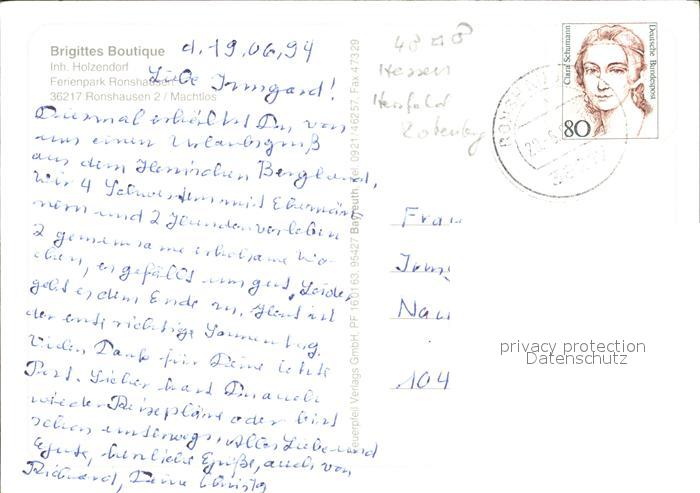 Brigittes Boutique
Inh. Holzendorf
Ferienpark Ronshausen
36217 Ronshausen 2 / Machtlos
d. 19.06.94
Liebe Irmgard!
Diesmal erhältst Du von
uns einen Urlaubsgruß
aus dem Hessischen Bergland,
wir 4 Schwestern mit Ehemän-
nern und 2 Hunden verleben
2 gemeinsame erholsame Wo-
chen, es gefällt uns gut, Leider
geht es dem Ende zu, Heut ist
der erste richtige Sonnentag.
Vielen Dank für Deine letzte
Post. Sicher hast Du auch
wieder Reisepläne oder bist
schon unterwegs. Alles Liebe und
Gute, herzliche Grüße, auch von
Richard, Deine Christa
Feuerpfeil Verlags GmbH, PF 160163, 95427 Bayreuth, Tel. 0921/46257, Fax 47329
Hessen
Hersfeld
Rotenburg
Clara Schumann
Deutsche Bundespost
80
Frau
Irm
Nau
104
privacy protection
Datenschutz